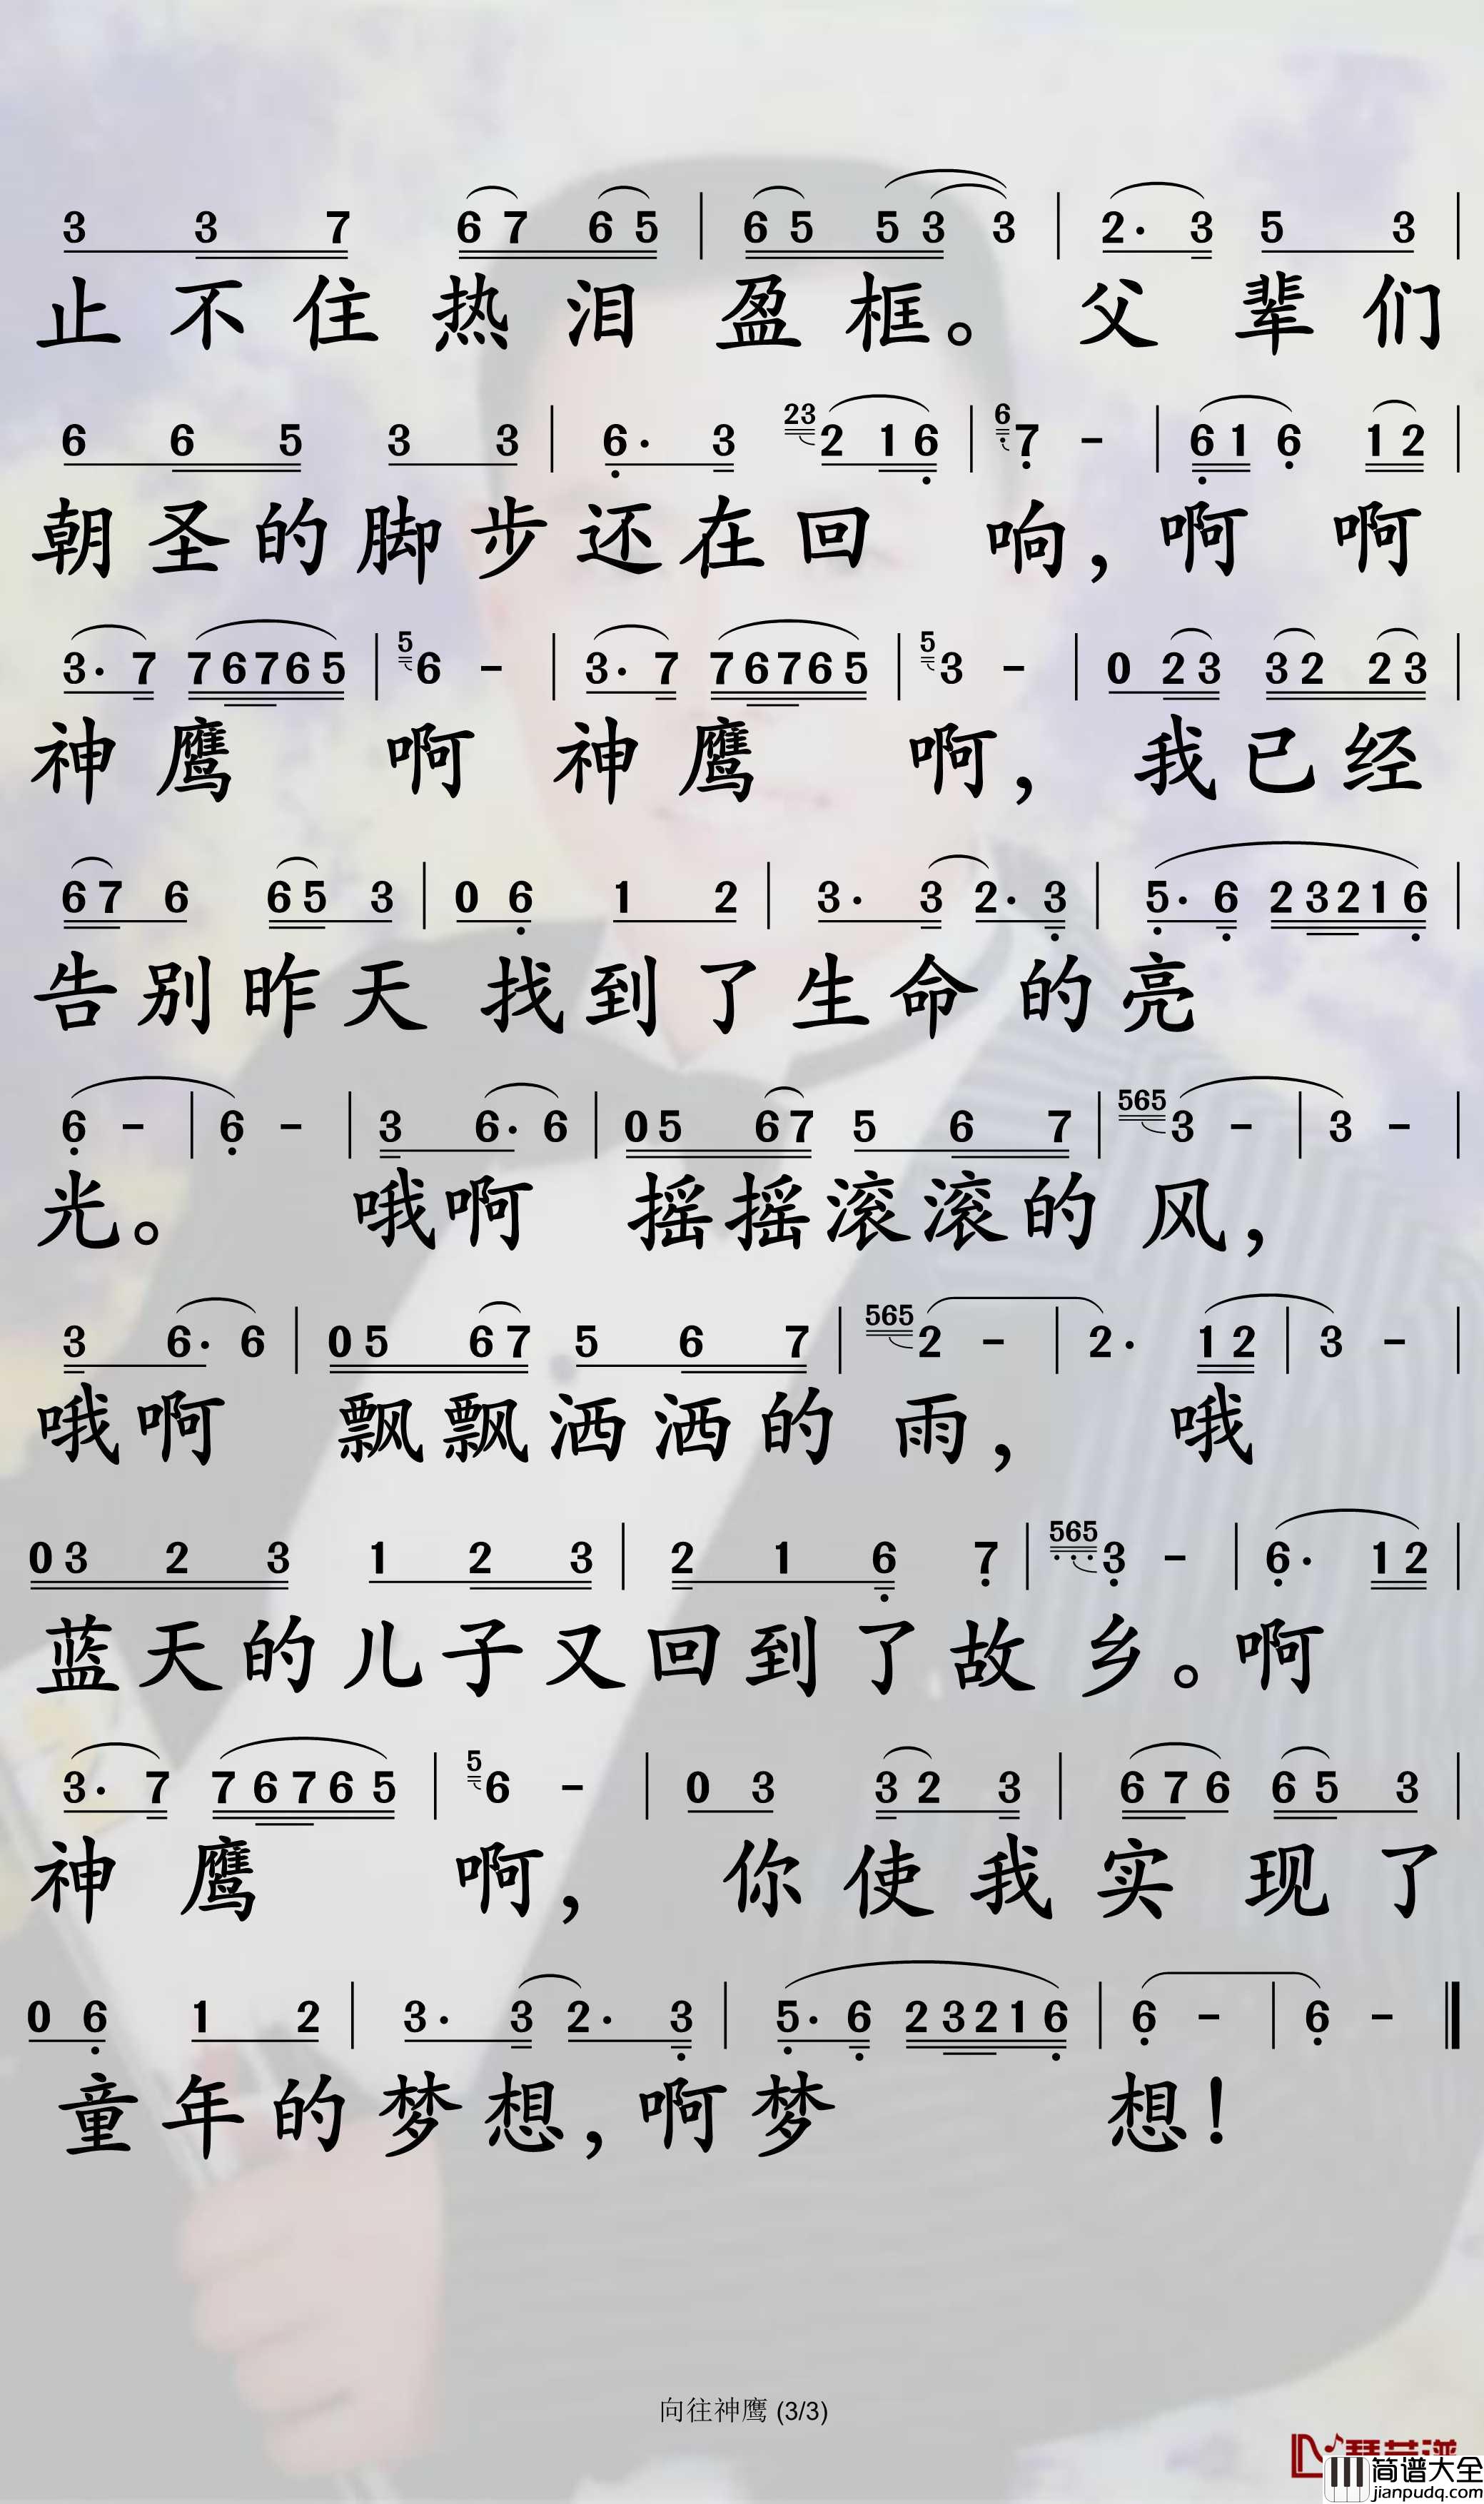 3 3 7 6 7 6 5 | 6 5 5 3 3 | 2· 3 5 3 |
止不住热泪盈框。父辈们
6 6 5 3 3 | 6· 3 23 2 1 6 | 6 7 - | 6 1 6 1 2 |
朝圣的脚步还在回响,啊啊
3· 7 7 6 7 6 5 | 5 6 - | 3· 7 7 6 7 6 5 | 5 3 - | 0 2 3 3 2 2 3 |
神鹰啊神鹰啊,我已经
6 7 6 6 5 3 | 0 6 1 2 | 3· 3 2· 3 | 5· 6 2 3 2 1 6 |
告别昨天找到了生命的亮
6 - | 6 - | 3 6· 6 | 0 5 6 7 5 6 7 | 565 3 - | 3 - |
光。哦啊摇摇滚滚的风,
3 6· 6 | 0 5 6 7 5 6 7 | 565 2 - | 2· 1 2 | 3 - |
哦啊飘飘洒洒的雨,哦
0 3 2 3 1 2 3 | 2 1 6 7 | 565 3 - | 6· 1 2 |
蓝天的儿子又回到了故乡。啊
3· 7 7 6 7 6 5 | 5 6 - | 0 3 3 2 3 | 6 7 6 6 5 3 |
神鹰啊,你使我实现了
0 6 1 2 | 3· 3 2· 3 | 5· 6 2 3 2 1 6 | 6 - | 6 - ‖
童年的梦想,啊梦想!
向往神鹰 (3/3)
简谱大全
jianpudq.com